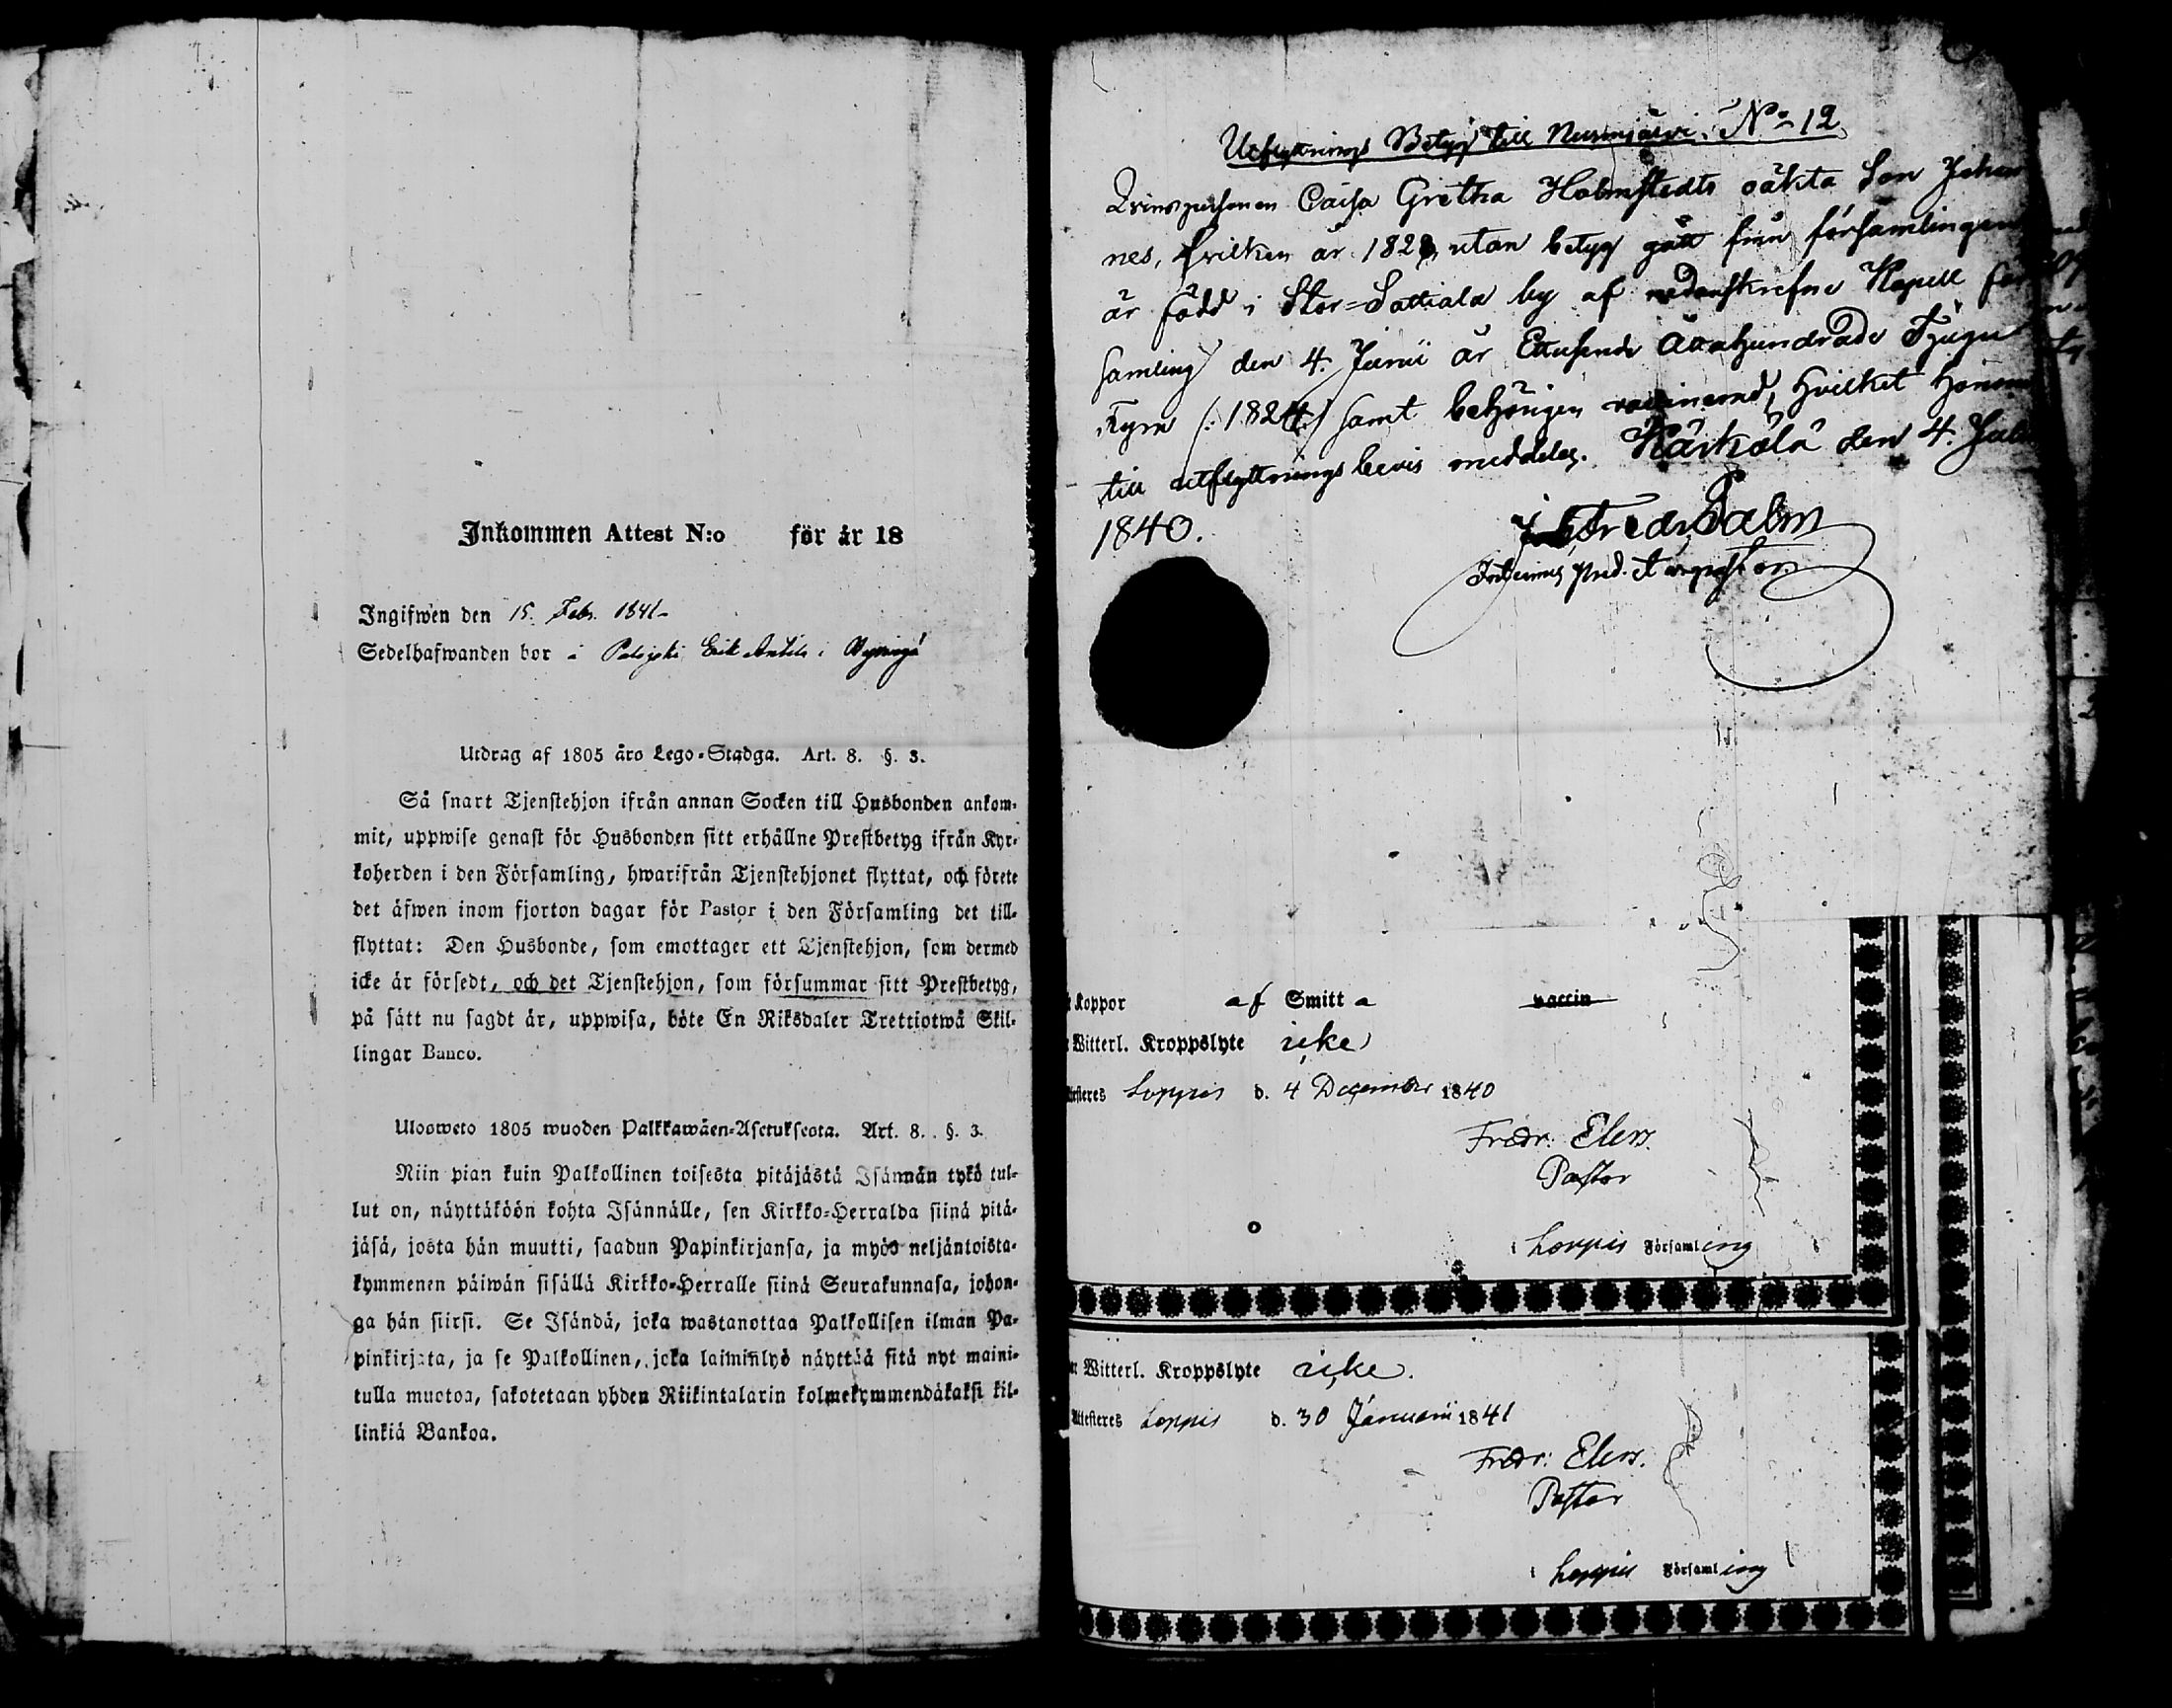 Inkommen Attest N:o för år 18
Ingifwen den 15. Febr. 1841
Sedelhafwanden bor i Erik Antila i
Utdrag af 1805 års Lego-Stadga. Art. 8. §. 3.
Så snart Tjenstehjon ifrån annan Socken till Husbonden ankom-
mit, uppwise genast för Husbonden sitt erhållne Prestbetyg ifrån Kyr-
koherden i den Församling, hwarifrån Tjenstehjonet flyttat, och förete
det äfwen inom fjorton dagar för Pastor i den Församling det till-
flyttat: Den Husbonde, som emottager ett Tjenstehjon, som dermed
icke är försedt, och det Tjenstehjon, som försummar sitt Prestbetyg,
på sätt nu sagdt är, uppwisa, böte En Riksdaler Trettiotwå Skil-
lingar Banco.
Ulosweto 1805 wuoden Palkkawäen-Asetuksesta. Art. 8. §. 3.
Niin pian kuin Palkollinen toisesta pitäjästä Isännän tykö tul-
lut on, näyttäköön kohta Isännälle, sen Kirkko-Herralda siinä pitä-
jäsä, josta hän muutti, saadun Papinkirjansa, ja myös neljäntoista-
kymmenen päiwän sisällä Kirkko-Herralle siinä Seurakunnasa, johon-
ga hän siirsi. Se Isändä, joka wastanottaa Palkollisen ilman Pa-
pinkirjata, ja se Palkollinen, joka laiminlyö näyttää sitä nyt maini-
tulla muotoa, sakotetaan yhden Riikintalarin kolmekymmendäkaksi kil-
linkiä Bankoa.
Utflyttnings Betyg till Nurmijärvi. No 12
Qvinspersonen Caisa Gretha Holmstedts oäkta Son Johan
nes, hvilken år 182 utan betyg gått från församlingen
är född i Stor-Sattiala by af nedanskrefne Kapell för
samling den 4. Junii år Ettusende Åttahundrade Tjugu
Fyra /: 1824 :/ samt behörigen vaccinerad, hvilket honom
till utflyttnings bevis meddelas. Kärkölä den 4. Juli
1840.
Fredr. Palm
Koppor af Smitta vaccin
Witterl. Kroppslyte icke
Loppis d. 4 December 1840
Fredr. Elers.
Pastor
i Loppis Församling
Witterl. Kroppslyte icke.
Attesteres Loppis d. 30 Januarii 1841
Fredr. Elers.
Pastor
i Loppis Församling